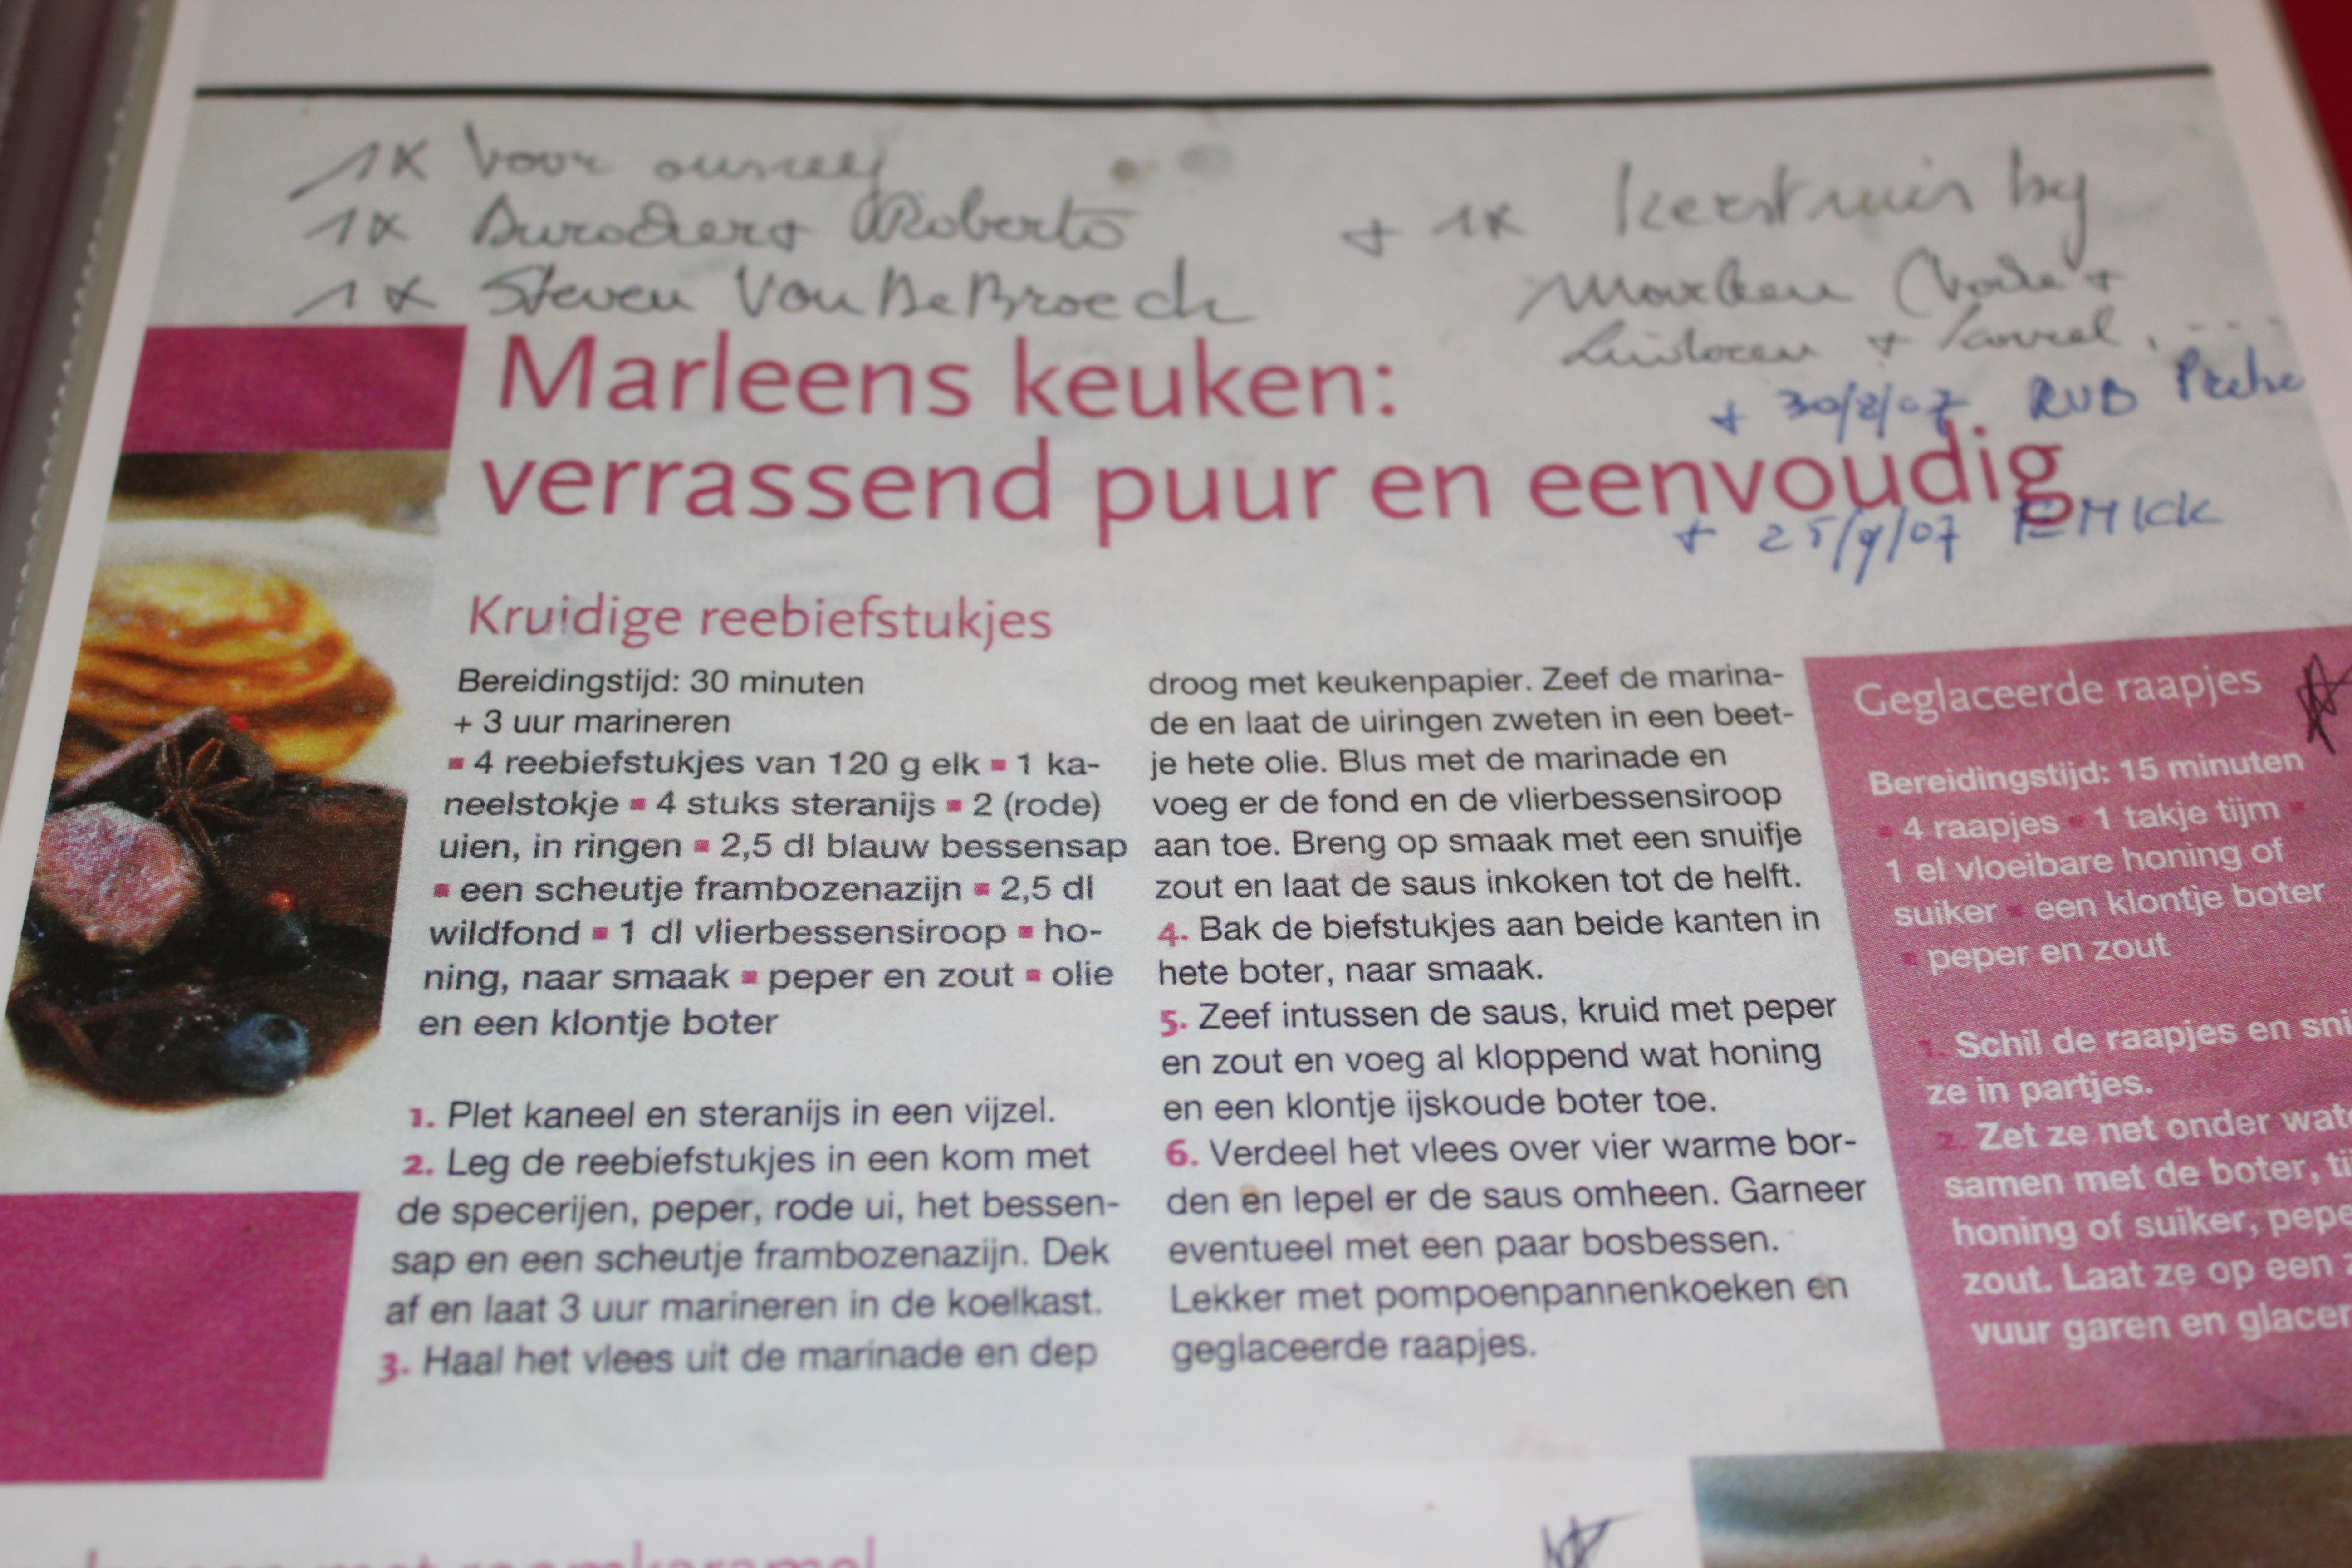 1x voor
1x Roberto
1x Steven VanDeBroeck
+ 1x Kerstmis bij
Marleen
+
+ 30/8/07 RUB
+ 25/9/07
Marleens keuken:
verrassend puur en eenvoudig
Kruidige reebiefstukjes
Bereidingstijd: 30 minuten
+ 3 uur marineren
▪ 4 reebiefstukjes van 120 g elk ▪ 1 ka-
neelstokje ▪ 4 stuks steranijs ▪ 2 (rode)
uien, in ringen ▪ 2,5 dl blauw bessensap
▪ een scheutje frambozenazijn ▪ 2,5 dl
wildfond ▪ 1 dl vlierbessensiroop ▪ ho-
ning, naar smaak ▪ peper en zout ▪ olie
en een klontje boter
1. Plet kaneel en steranijs in een vijzel.
2. Leg de reebiefstukjes in een kom met
de specerijen, peper, rode ui, het bessen-
sap en een scheutje frambozenazijn. Dek
af en laat 3 uur marineren in de koelkast.
3. Haal het vlees uit de marinade en dep
droog met keukenpapier. Zeef de marina-
de en laat de uiringen zweten in een beet-
je hete olie. Blus met de marinade en
voeg er de fond en de vlierbessensiroop
aan toe. Breng op smaak met een snuifje
zout en laat de saus inkoken tot de helft.
4. Bak de biefstukjes aan beide kanten in
hete boter, naar smaak.
5. Zeef intussen de saus, kruid met peper
en zout en voeg al kloppend wat honing
en een klontje ijskoude boter toe.
6. Verdeel het vlees over vier warme bor-
den en lepel er de saus omheen. Garneer
eventueel met een paar bosbessen.
Lekker met pompoenpannenkoeken en
geglaceerde raapjes.
Geglaceerde raapjes
Bereidingstijd: 15 minuten
▪ 4 raapjes ▪ 1 takje tijm ▪
1 el vloeibare honing of
suiker ▪ een klontje boter
▪ peper en zout
1. Schil de raapjes en sni
ze in partjes.
2. Zet ze net onder wat
samen met de boter, ti
honing of suiker, pepe
zout. Laat ze op een
vuur garen en glacer
met roomkaramel